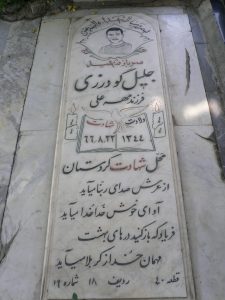 سرباز شهید
جلیل گودرزی
فرزند صفر علی
ولادت شهادت
۱۳۴۴ ۶۶.۸.۲۲
محل شهادت کردستان
از عرش صدای ربنا میآید
آوای خوش خدا خدا میآید
فریاد که باز کنید درهای بهشت
مهمان خدا از کربلا میآید
قطعه ۴۰ ردیف ۱۸ شماره ۱۹